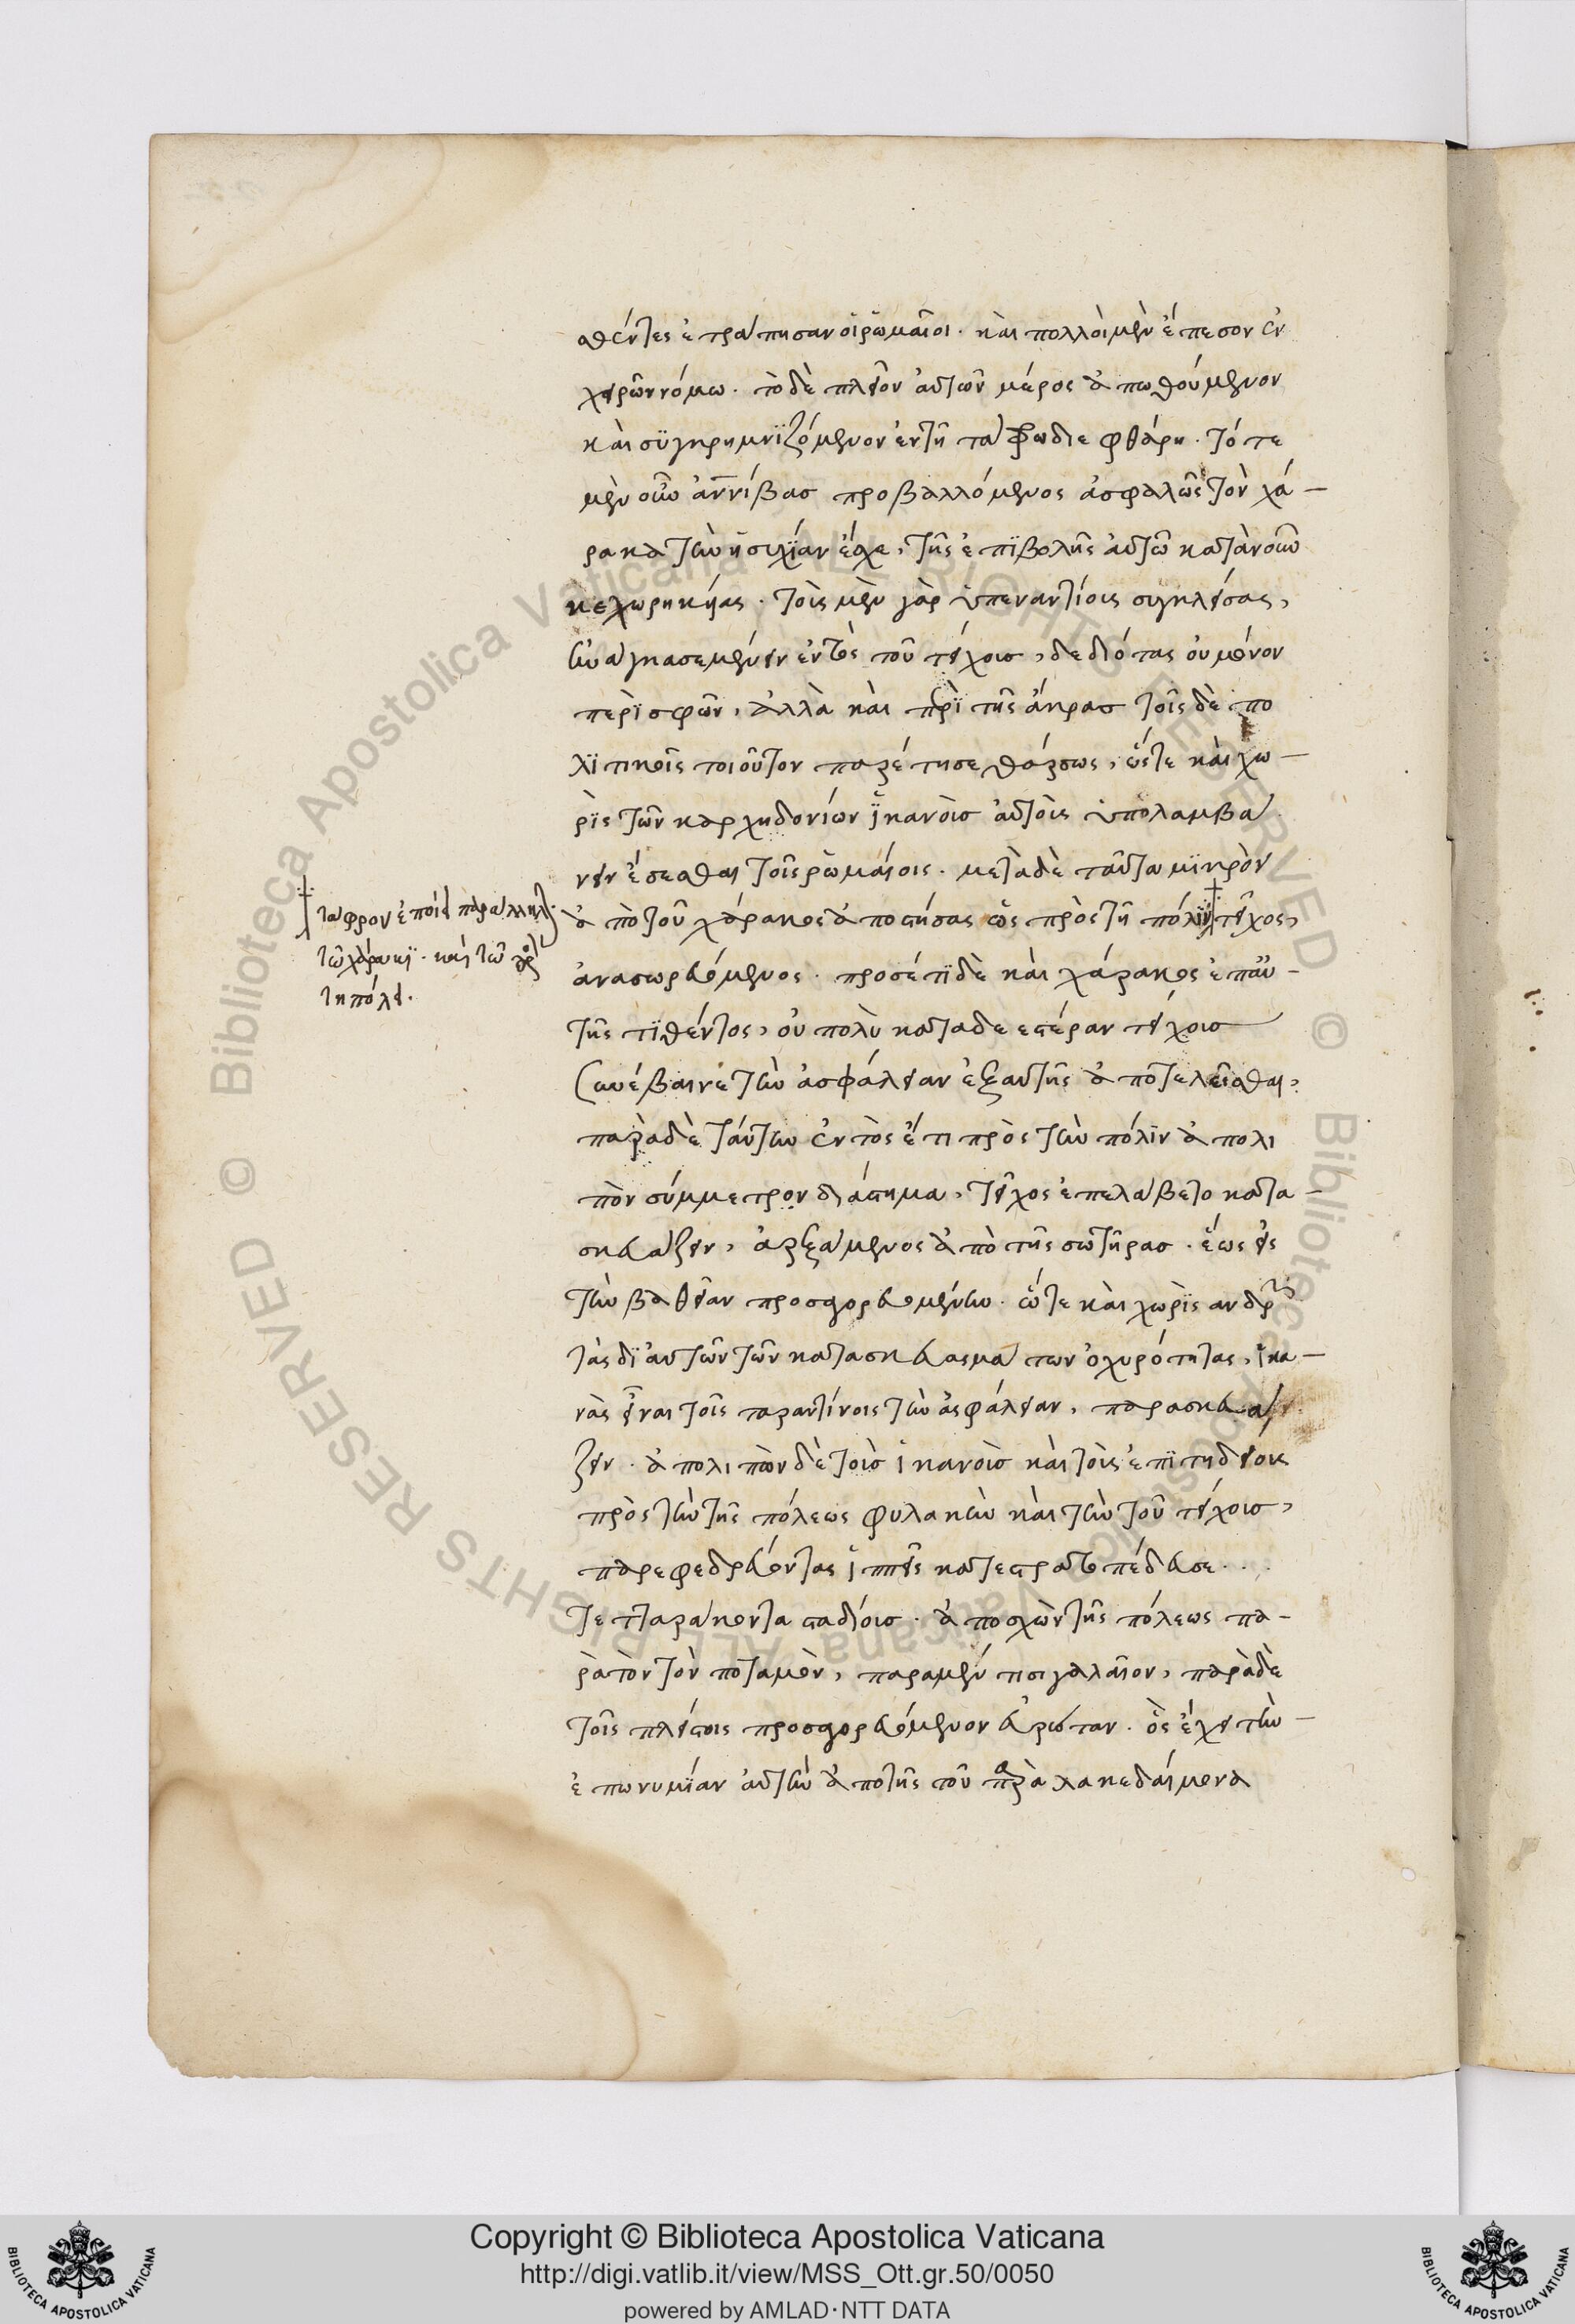 σθέντες ἐτράπησαν οἱ ῥωμαῖοι. καὶ πολλοὶ μὲν ἔπεσον ἐν
χειρῶν νόμω. τὸ δὲ πλεῖον αὐτῶν μέρος ἀπωθούμενον
καὶ συγκρημνιζόμενον ἐν τῆ τάφρω διεφθάρη. τότε
μὲν οὖν ἀννίβας προβαλλόμενος ἀσφαλῶς τὸν χά-
ρακα τὴν ἡσυχίαν ἔσχε, τῆς ἐπιβολῆς αὐτῶ κατὰ νοῦν
κεχωρηκυίας. τοὺς μὲν γὰρ ὑπεναντίους συγκλείσας,
ἠνάγκασε μένειν ἐντὸς τοῦ τείχους, δεδιότας οὐ μόνον
περὶ σφῶν, ἀλλὰ καὶ περὶ τῆς ἄκρας τοῖς δὲ πο
λιτικοῖς τοιοῦτον παρέστησε θάρσος, ὥστε καὶ χω-
ρὶς τῶν καρχηδονίων ἱκανοὺς αὐτοὺς ὑπολαμβά
νειν ἔσεσθαι τοῖς ῥωμαίοις. μετὰ δὲ ταῦτα μικρὸν
ἀπὸ τοῦ χάρακος ἀποστήσας ὡς πρὸς τὴ πόλιν τεῖχος,
ἀνασωρευόμενος. προσέτι δὲ καὶ χάρακος ἐπ' αὐ-
τῆς τιθέντος, οὐ πολὺ καταδεεστέραν τείχους
συνέβαινε τὴν ἀσφάλειαν ἐξ αὐτῆς ἀποτελεῖσθαι,
παρὰ δὲ ταύτην ἐντὸς ἔτι πρὸς τὴν πόλιν ἀπολι
πὸν σύμμετρον διάστημα, τεῖχος ἐπελάβετο κατα-
σκευάζειν, ἀρξάμενος ἀπὸ τῆς σωτήρας. ἕως εἰς
τὴν βαθεῖαν προσαγορευομένην. ὥστε καὶ χωρὶς ανδρῶν
τὰς δι' αὐτῶν τῶν κατασκευασμάτων ὀχυρότητας, ἱκα-
νὰς εἶναι τοῖς ταραντίνοις τὴν ἀσφάλειαν, παρασκευά
ζειν. ἀπολιπὼν δὲ τοὺς ἱκανοὺς καὶ τοὺς ἐπιτηδείους
πρὸς τὴν τῆς πόλεως φυλακὴν καὶ τὴν τοῦ τείχους,
παρεφεδρεύοντας ἱππεῖς κατεστρατοπέδευσε..
τετταράκοντα σταδίους. ἀποσχὼν τῆς πόλεως πα-
ρὰ τὸν τὸν ποταμὸν, παρὰ μέν τισι γαλαῖον, παρὰ δὲ
τοῖς πλείστοις προσαγορευόμενον εὐρώταν. ὃς ἔχει τὴν-
ἐπωνυμίαν αὐτὴν ἀπὸ τῆς τοῦ παρὰ λακεδαίμονα
τάφρον ἐποίει παράλληλον
τῶ χάρακι. καὶ τῶ πρὸς
τη πόλει.
Copyright © Biblioteca Apostolica Vaticana
http://digi.vatlib.it/view/MSS_Ott.gr.50/0050
powered by AMLAD·NTT DATA